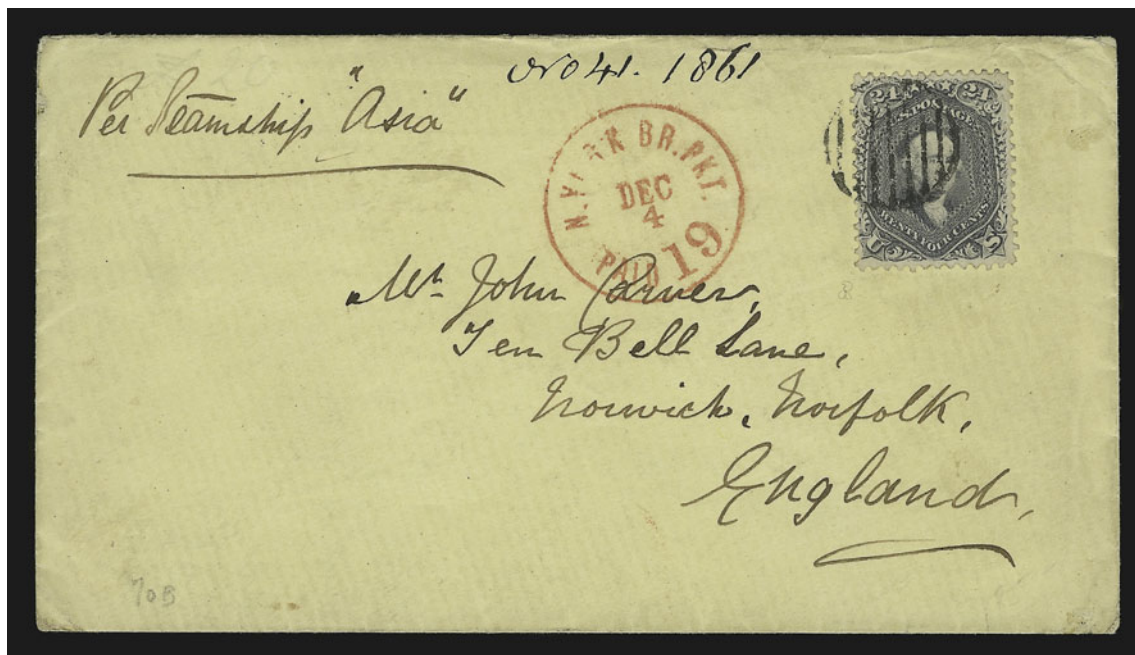 No 41. 1861
Per Steamship "Asia"
N. YORK BR. PKT.
DEC
4
PAID 19
24 24
U.S. POSTAGE
TWENTY FOUR CENTS
U S
Mr. John Carver,
Ten Bell Lane,
Norwich, Norfolk,
England,
70B